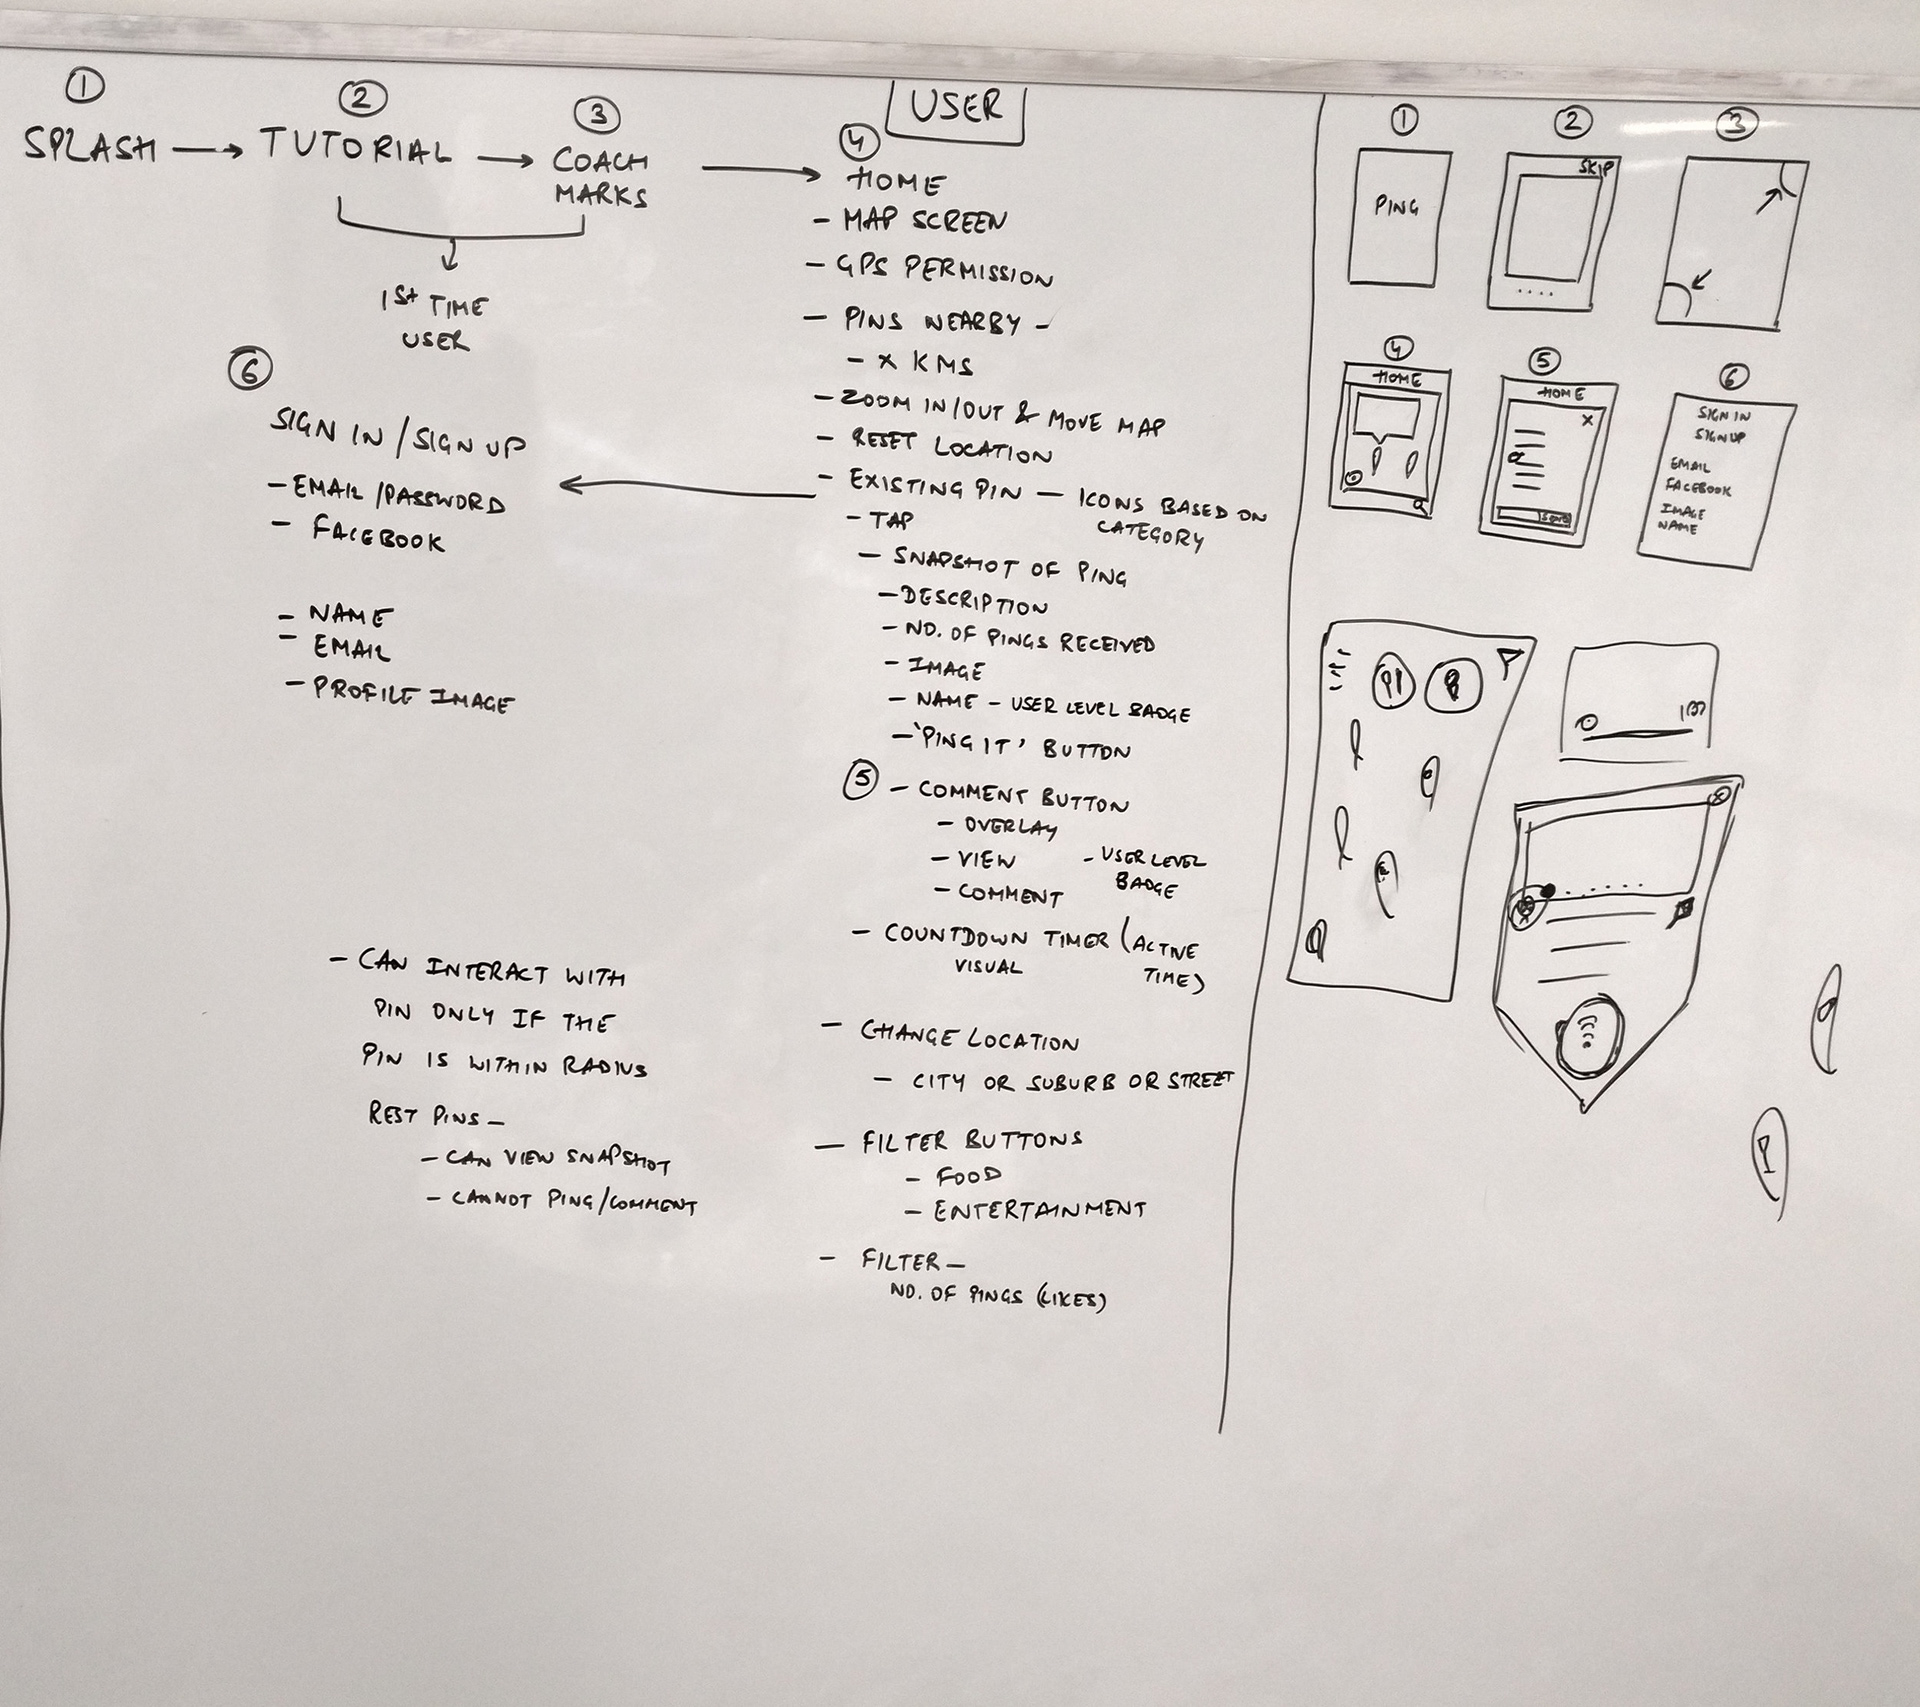 USER
①
SPLASH →
②
TUTORIAL →
③
COACH
MARKS
1St TIME
USER
④
HOME
- MAP SCREEN
- GPS PERMISSION
- PINS NEARBY -
- X KMS
- ZOOM IN/OUT & MOVE MAP
- RESET LOCATION
- EXISTING PIN - ICONS BASED ON
CATEGORY
- TAP
- SNAPSHOT OF PING
- DESCRIPTION
- NO. OF PINGS RECEIVED
- IMAGE
- NAME - USER LEVEL BADGE
- 'PING IT' BUTTON
⑤ - COMMENT BUTTON
- OVERLAY
- VIEW - USER LEVEL
BADGE
- COMMENT
- COUNTDOWN TIMER (ACTIVE
VISUAL TIME)
- CHANGE LOCATION
- CITY OR SUBURB OR STREET
- FILTER BUTTONS
- FOOD
- ENTERTAINMENT
- FILTER -
NO. OF PINGS (LIKES)
⑥
SIGN IN / SIGN UP
- EMAIL / PASSWORD
- FACEBOOK
- NAME
- EMAIL
- PROFILE IMAGE
- CAN INTERACT WITH
PIN ONLY IF THE
PIN IS WITHIN RADIUS
REST PINS -
- CAN VIEW SNAPSHOT
- CANNOT PING/COMMENT
①
PING
②
SKIP
③
④
HOME
⑤
HOME
X
⑥
SIGN IN
SIGN UP
EMAIL
FACEBOOK
IMAGE
NAME